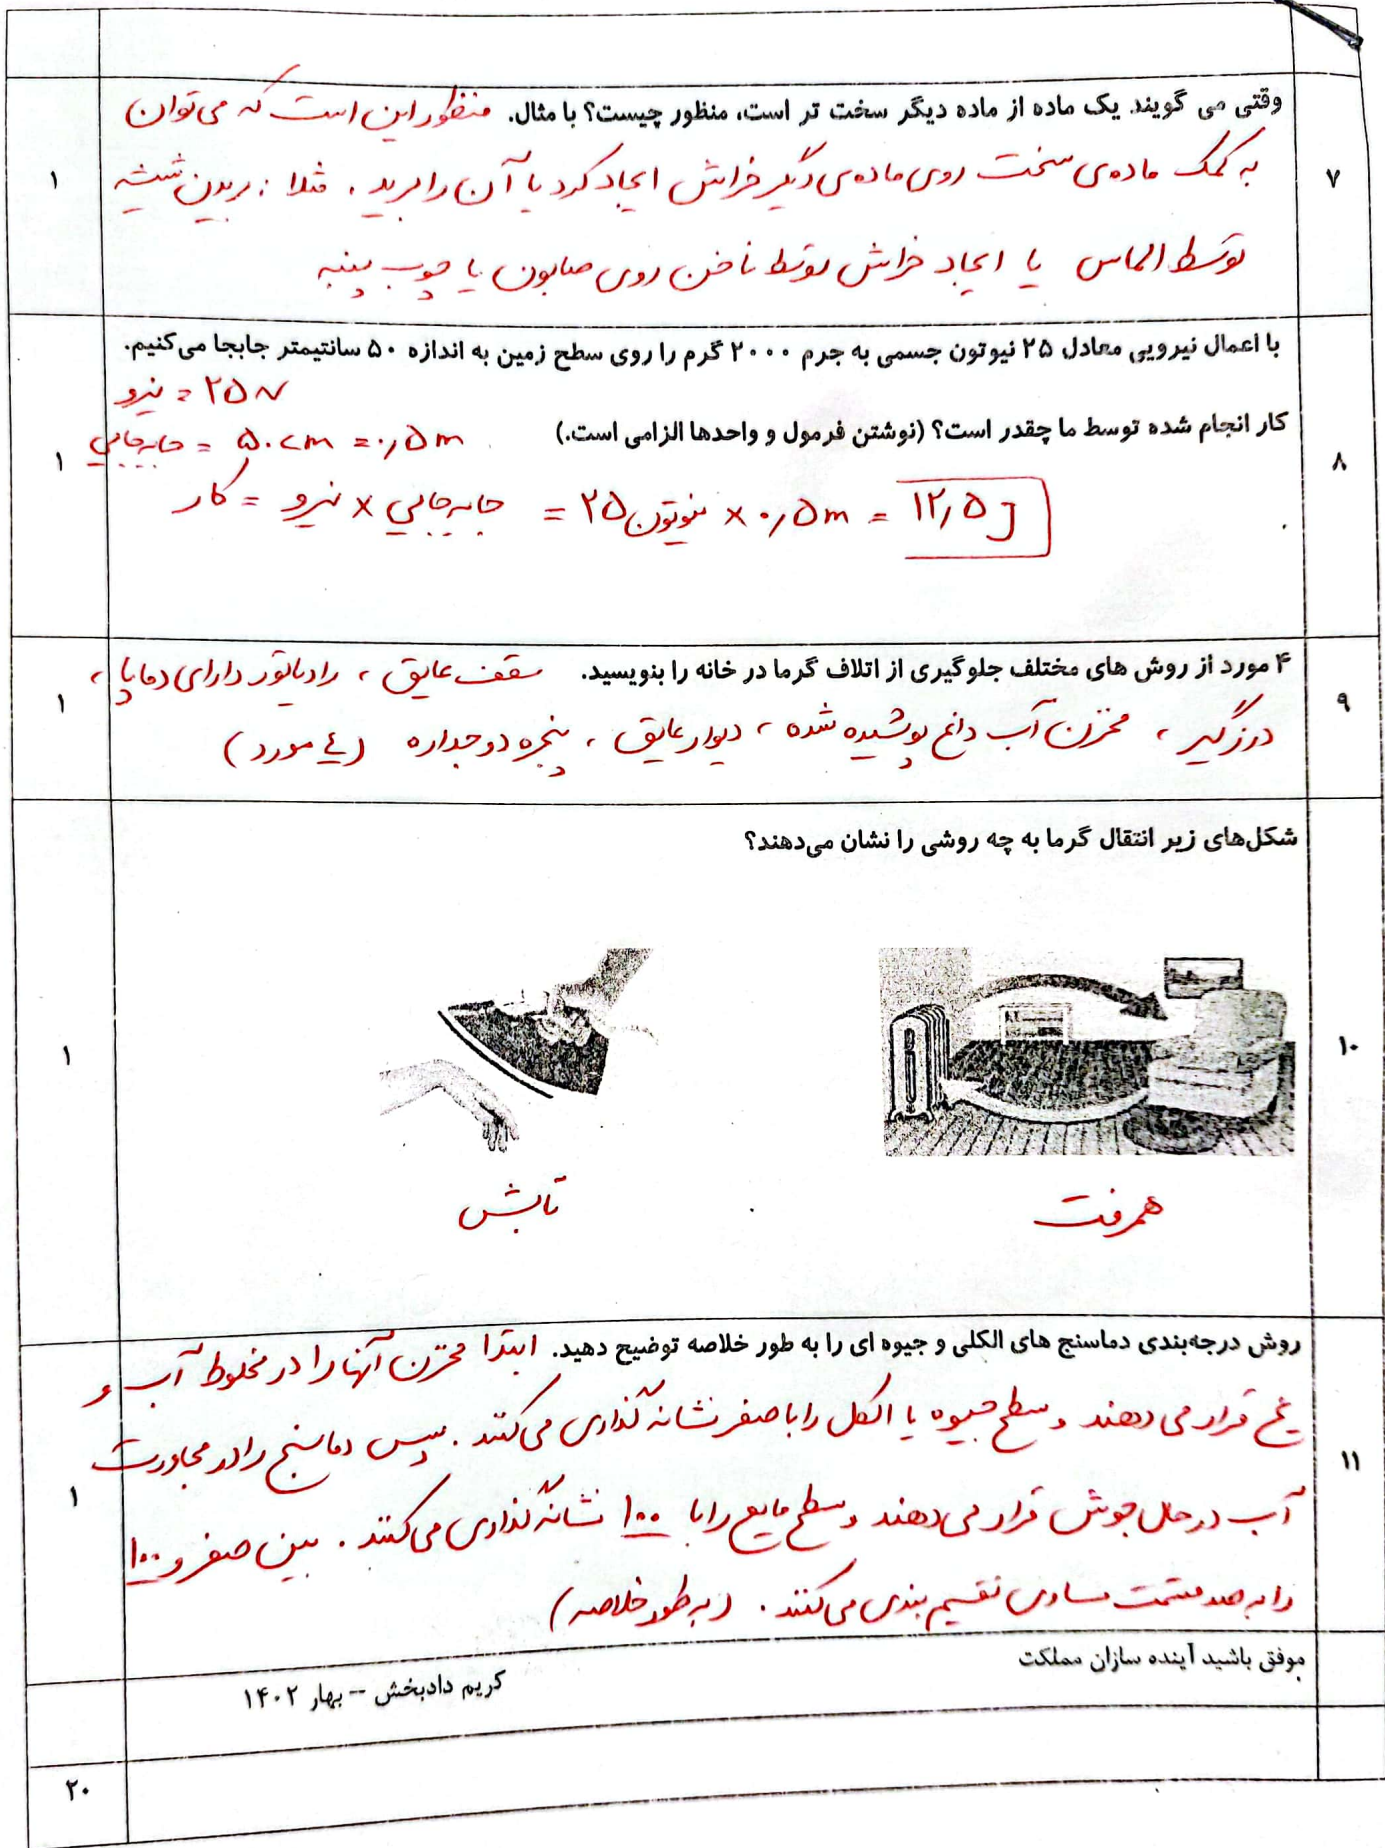 وقتی می گویند یک ماده از ماده دیگر سخت تر است، منظور چیست؟ با مثال. منظور این است که می‌توان
۷
به کمک ماده‌ی سخت روی ماده‌ی دیگر خراش ایجاد کرد یا آن را برید. مثلا: بریدن شیشه
۱
توسط الماس یا ایجاد خراش توسط ناخن روی صابون یا چوب پنبه
با اعمال نیرویی معادل ۲۵ نیوتون جسمی به جرم ۲۰۰۰ گرم را روی سطح زمین به اندازه ۵۰ سانتیمتر جابجا می‌کنیم.
نیرو = ۲۵ N
کار انجام شده توسط ما چقدر است؟ (نوشتن فرمول و واحدها الزامی است.)
جابه‌جایی = ۵۰ cm = ۰٫۵ m
۸
۱
کار = نیرو × جابه‌جایی = ۲۵ نیوتون × ۰٫۵ m = ۱۲٫۵ J
۴ مورد از روش های مختلف جلوگیری از اتلاف گرما در خانه را بنویسید. سقف عایق، رادیاتور دارای دماپا،
۹
۱
درزگیر، مخزن آب داغ پوشیده شده، دیوار عایق، پنجره دو جداره (٤ مورد)
شکل‌های زیر انتقال گرما به چه روشی را نشان می‌دهند؟
۱۰
۱
همرفت
تابش
روش درجه‌بندی دماسنج های الکلی و جیوه ای را به طور خلاصه توضیح دهید. ابتدا مخزن آنها را در مخلوط آب و
یخ قرار می‌دهند و سطح جیوه یا الکل را با صفر نشانه گذاری می‌کنند. سپس دماسنج را در مجاورت
۱۱
۱
آب در حال جوش قرار می‌دهند و سطح مایع را با ۱۰۰ نشانه گذاری می‌کنند. بین صفر و ۱۰۰
را به صد قسمت مساوی تقسیم بندی می‌کنند. (به طور خلاصه)
موفق باشید آینده سازان مملکت
کریم دادبخش -- بهار ۱۴۰۲
۲۰